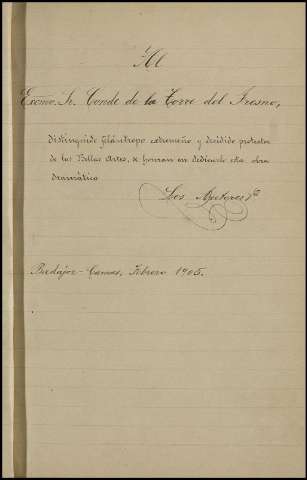 Al
Excmo. Sr. Conde de la Torre del Fresno,
distinguido filántropo extremeño y decidido protector
de las Bellas Artes, se honran en dedicarle esta obra
dramática
Los Autores
Badajoz - Camas, Febrero 1905.